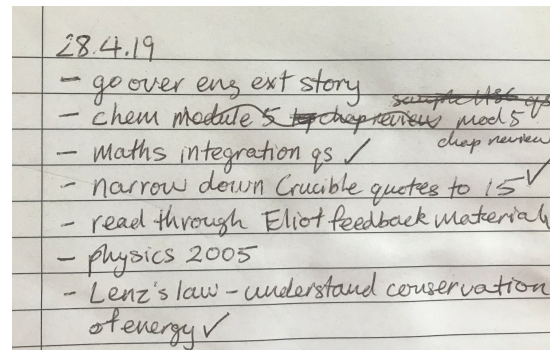 28.4.19
- go over eng ext story
- chem module 5 chap review mod 5
chap review
- Maths integration qs ✓
- narrow down Crucible quotes to 15 ✓
- read through Eliot feedback material
- physics 2005
- Lenz's law - understand conservation
of energy ✓